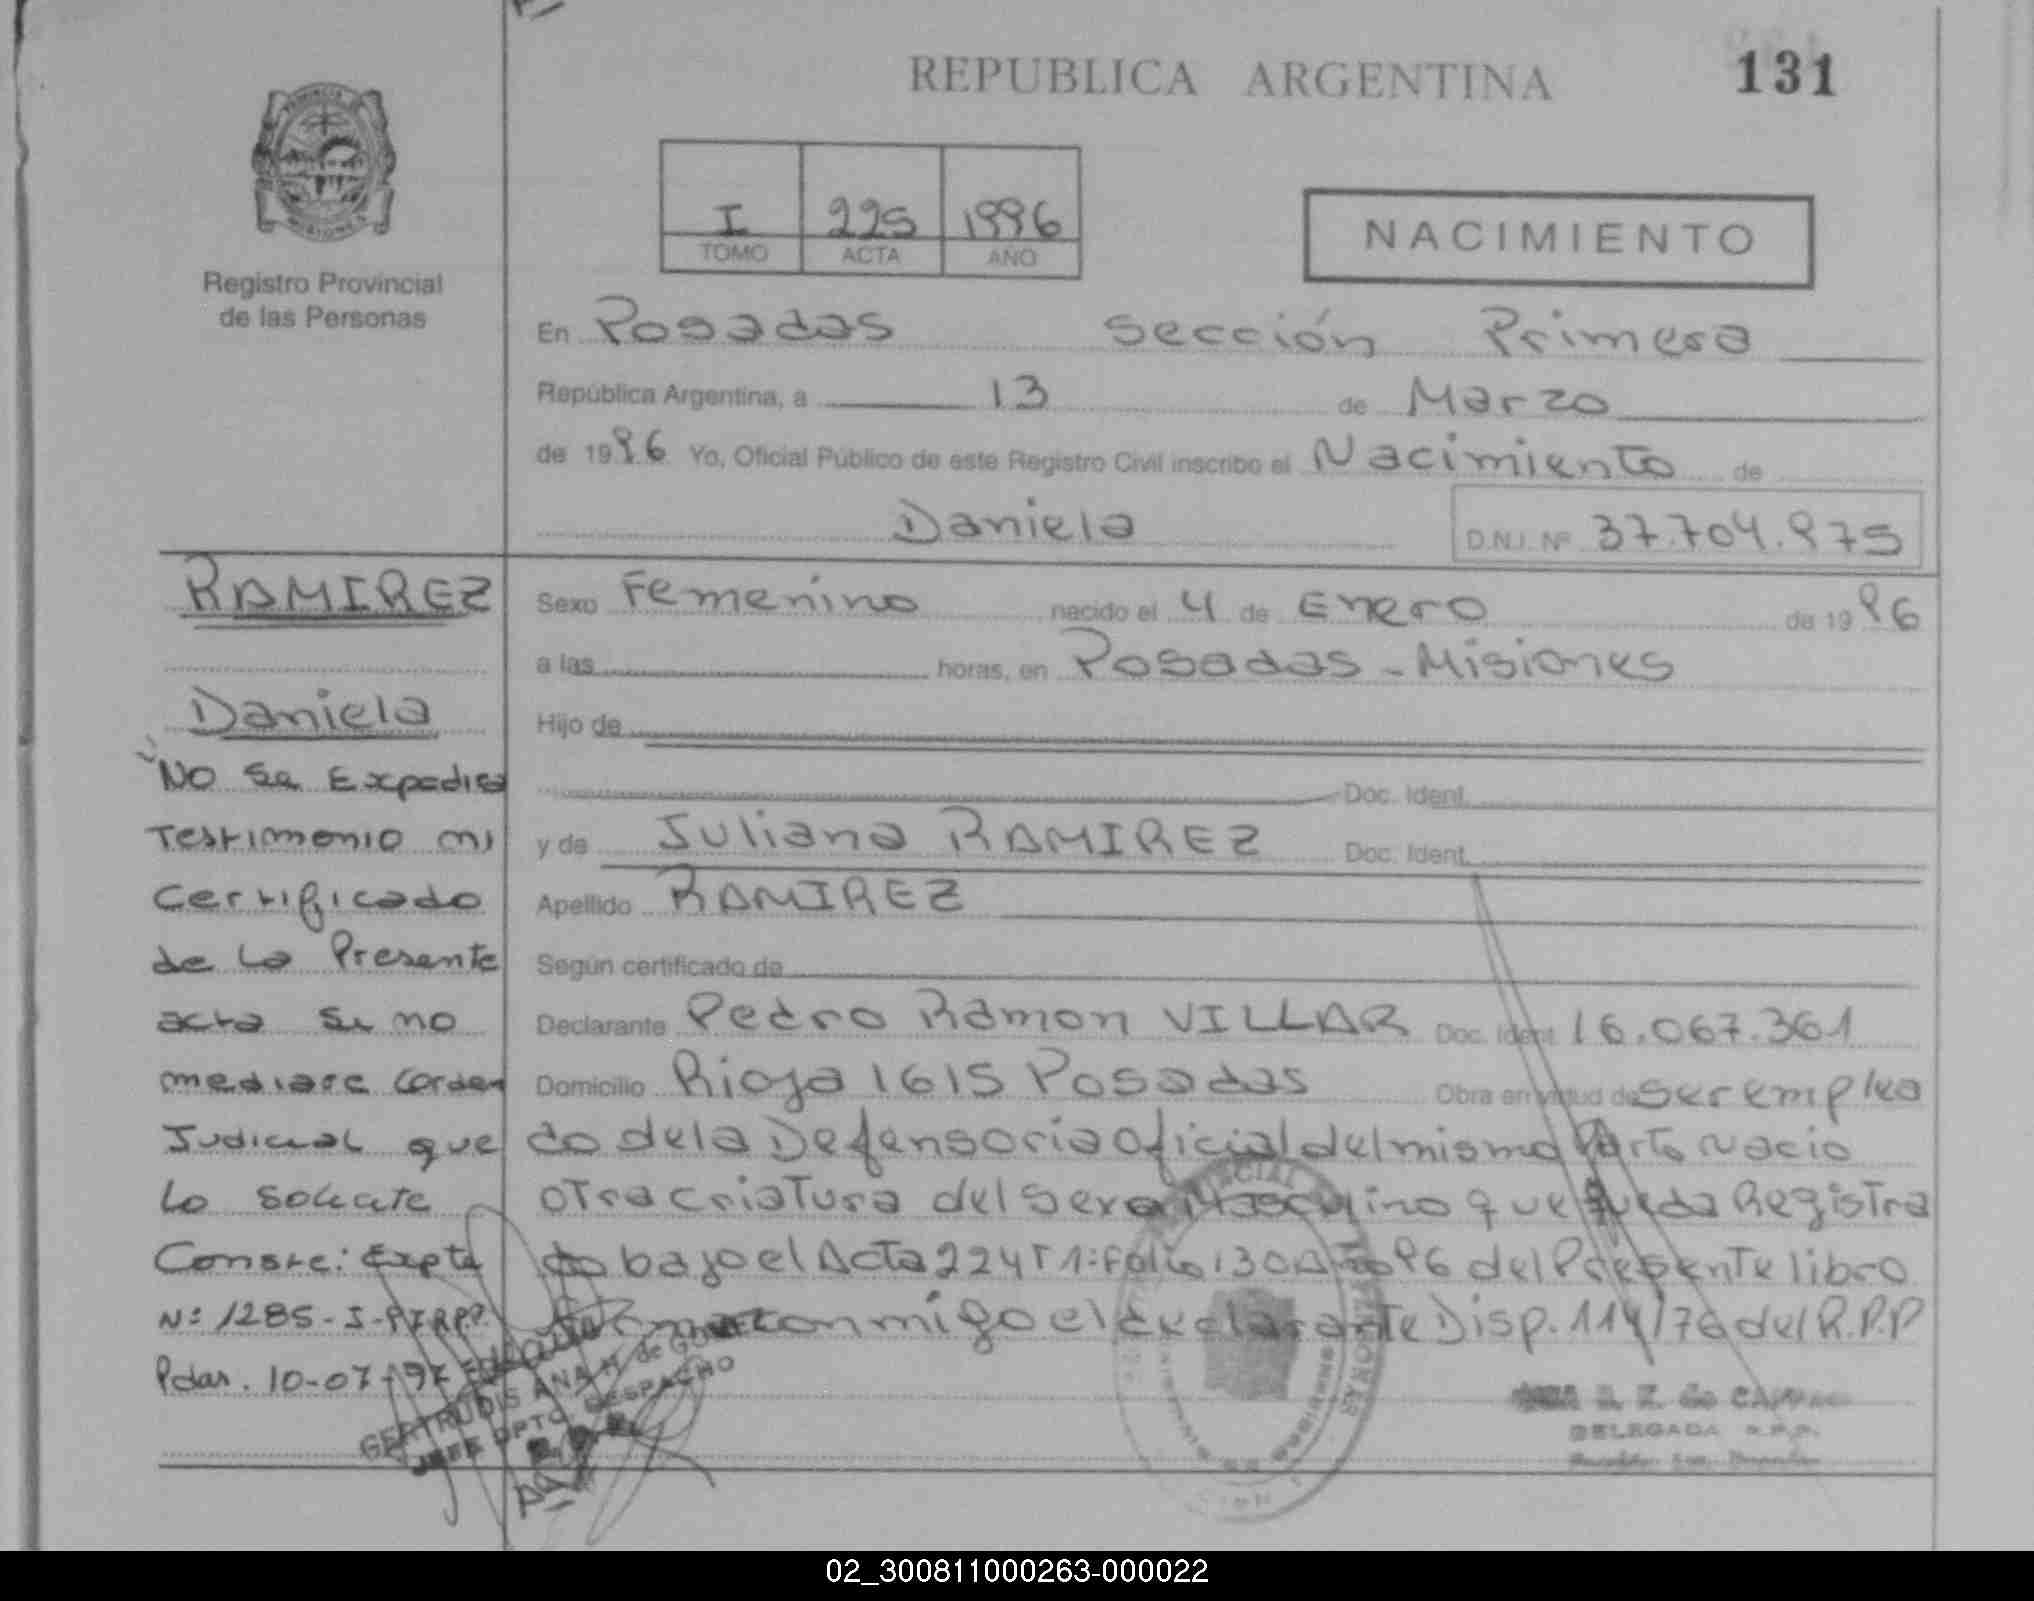 REPUBLICA ARGENTINA
131
PROVINCIA DE
MISIONES
Registro Provincial
de las Personas
I 225 1996
TOMO ACTA AÑO
NACIMIENTO
En Posadas Sección Primera
República Argentina, a 13 de Marzo
de 1996 Yo, Oficial Público de este Registro Civil inscribo el Nacimiento de
Daniela D.N.I. Nº 37.704.975
Sexo Femenino nacido el 4 de Enero de 1996
a las horas, en Posadas - Misiones
Hijo de
Doc. Ident.
y de Juliana RAMIREZ Doc. Ident.
Apellido RAMIREZ
Según certificado de
Declarante Pedro Ramon VILLAR Doc. Ident 16.067.361
Domicilio Rioja 1615 Posadas Obra en virtud de ser emplea
do de la Defensoria Oficial del mismo Parto Nacio
otra criatura del sexo Masculino que queda Registra
do bajo el Acta 224 T1: Folio 130 Año 96 del Presente libro
conmigo el declarante Disp. 114/76 del R.P.P
RAMIREZ
Daniela
No se Expedira
Testimonio ni
Certificado
de la Presente
acta si no
mediare Orden
Judicial que
lo solicite
Conste: Expte
Nº: 1285-I-
Pdas. 10-07-97
GERTRUDIS ANA M. de
JEFE DPTO. DESPACHO
DELEGADA R.P.P.
02_300811000263-000022